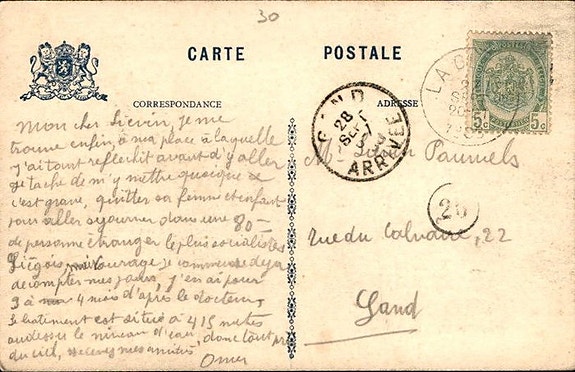 30
CARTE POSTALE
CORRESPONDANCE
ADRESSE
Mon cher Liévin, je me
trouve enfin, à ma place à laquelle
j'y ai tant reflechit avant d'y aller
je tache de m'y mettre quoique
c'est grave, quitter sa femme et enfant
pour aller sejourner dans une 80ne
de personne étranger le plus socialistes
Liégois, courage je commence deja
de compter mes jours, j'en ai pour
3 à 4 mois d'après le docteur,
le batiment est situé à 415 mètres
au dessus le niveau d'eau, donc tout près
du ciel, recevez mes amitiés
Omer
GAND
28
SEPT
ARRIVÉE
LA
5c 5c
Mr Pauwels
26
rue du Calvaire, 22
Gand